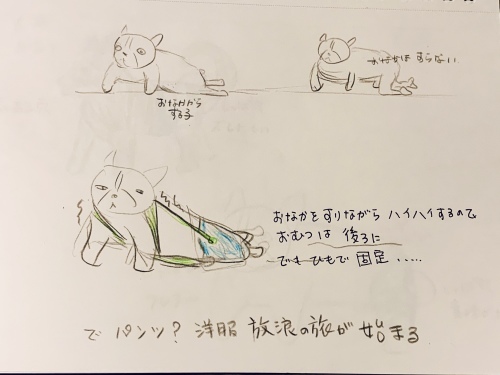 おなかがら
する子
おなかは すらない
おなかをすりながら ハイハイするので
おむつは 後ろに
でも ひもで 固定.....
で パンツ? 洋服 放浪の旅が 始まる